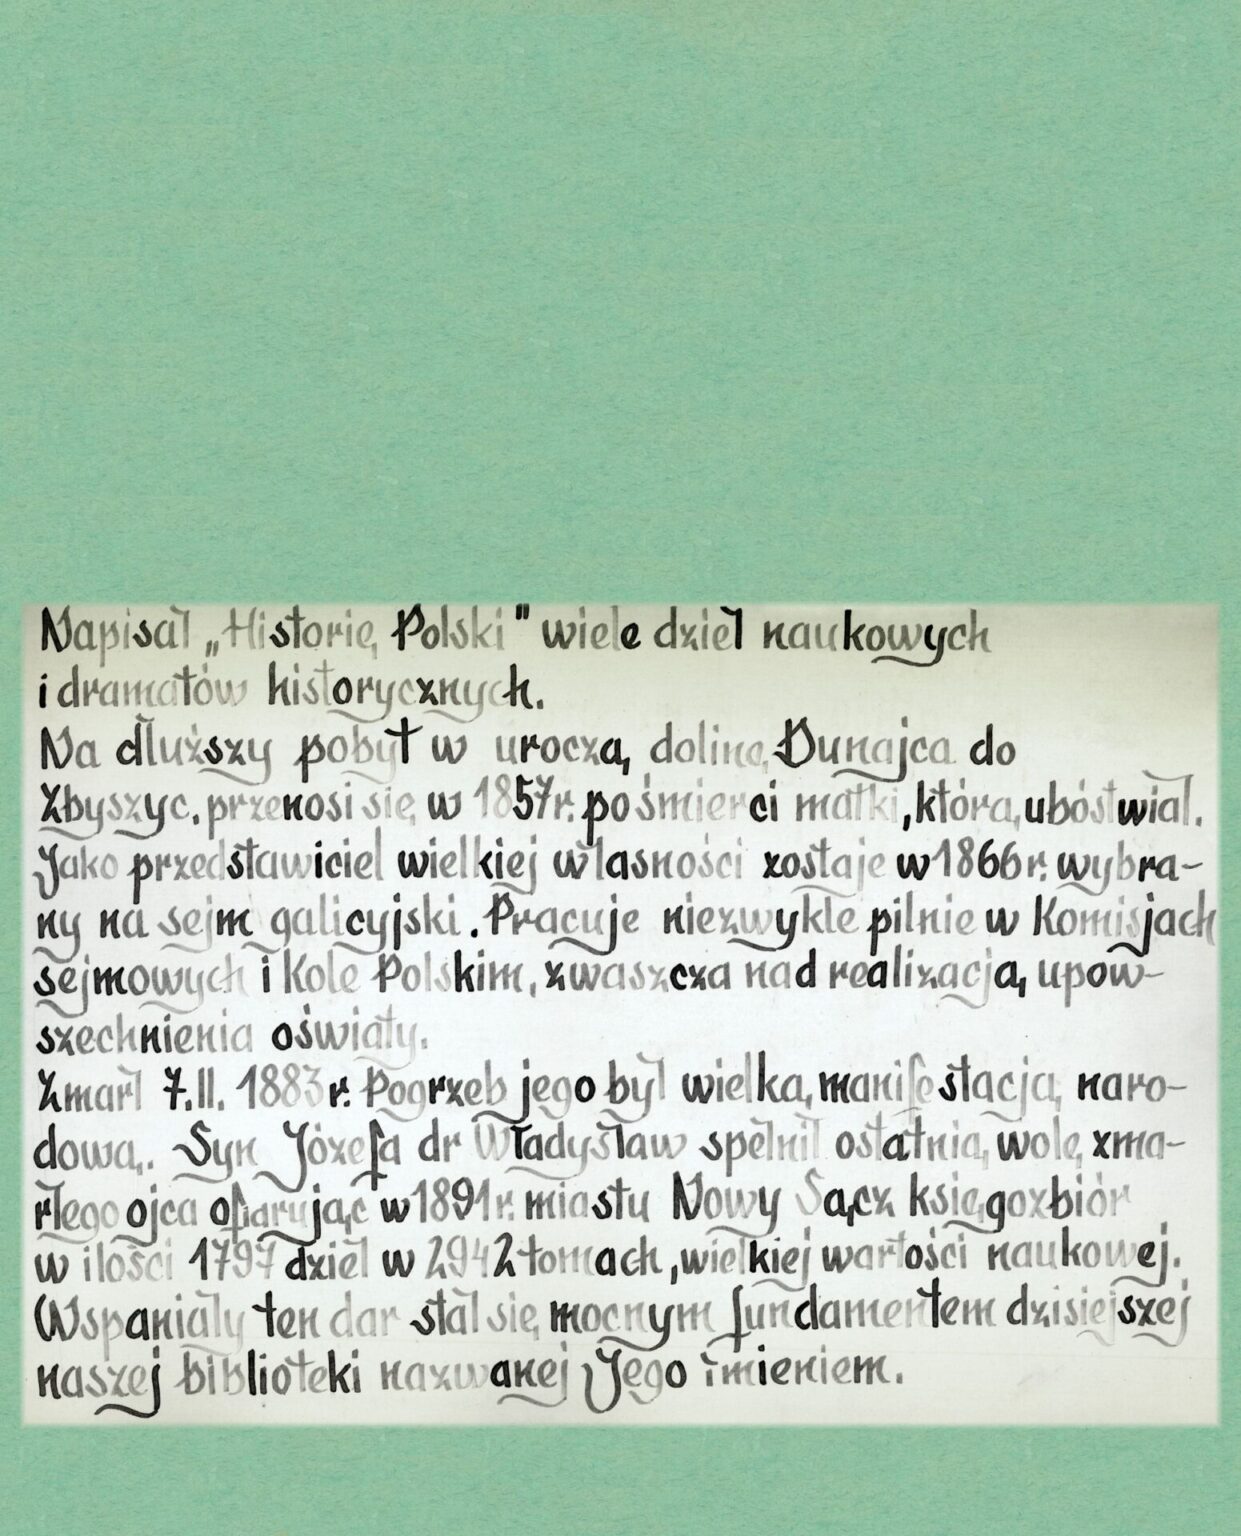 Napisał „Historię Polski" wiele dzieł naukowych
i dramatów historycznych.
Na dłuższy pobyt w uroczą dolinę Dunajca do
Zbyszyc. przenosi się w 1857r. po śmierci matki, którą ubóstwiał.
Jako przedstawiciel wielkiej własności zostaje w 1866r. wybra-
ny na sejm galicyjski. Pracuje niezwykle pilnie w Komisjach
sejmowych i Kole Polskim, zwaszcza nad realizacją upow-
szechnienia oświaty.
Zmarł 7.II. 1883 r. Pogrzeb jego był wielką manifestacją naro-
dową. Syn Józefa dr Władysław spełnił ostatnią wolę zma-
rłego ojca ofiarując w 1891r. miastu Nowy Sącz księgozbiór
w ilości 1797 dzieł w 2942 tomach, wielkiej wartości naukowej.
Wspaniały ten dar stał się mocnym fundamentem dzisiejszej
naszej biblioteki nazwanej Jego imieniem.